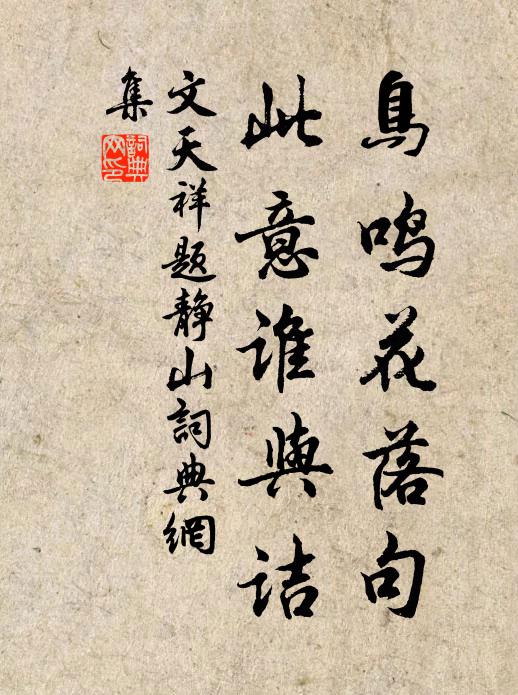 鳥鳴花落句
此意誰與詰
文天祥題靜山詞典網
集
詞典
網印